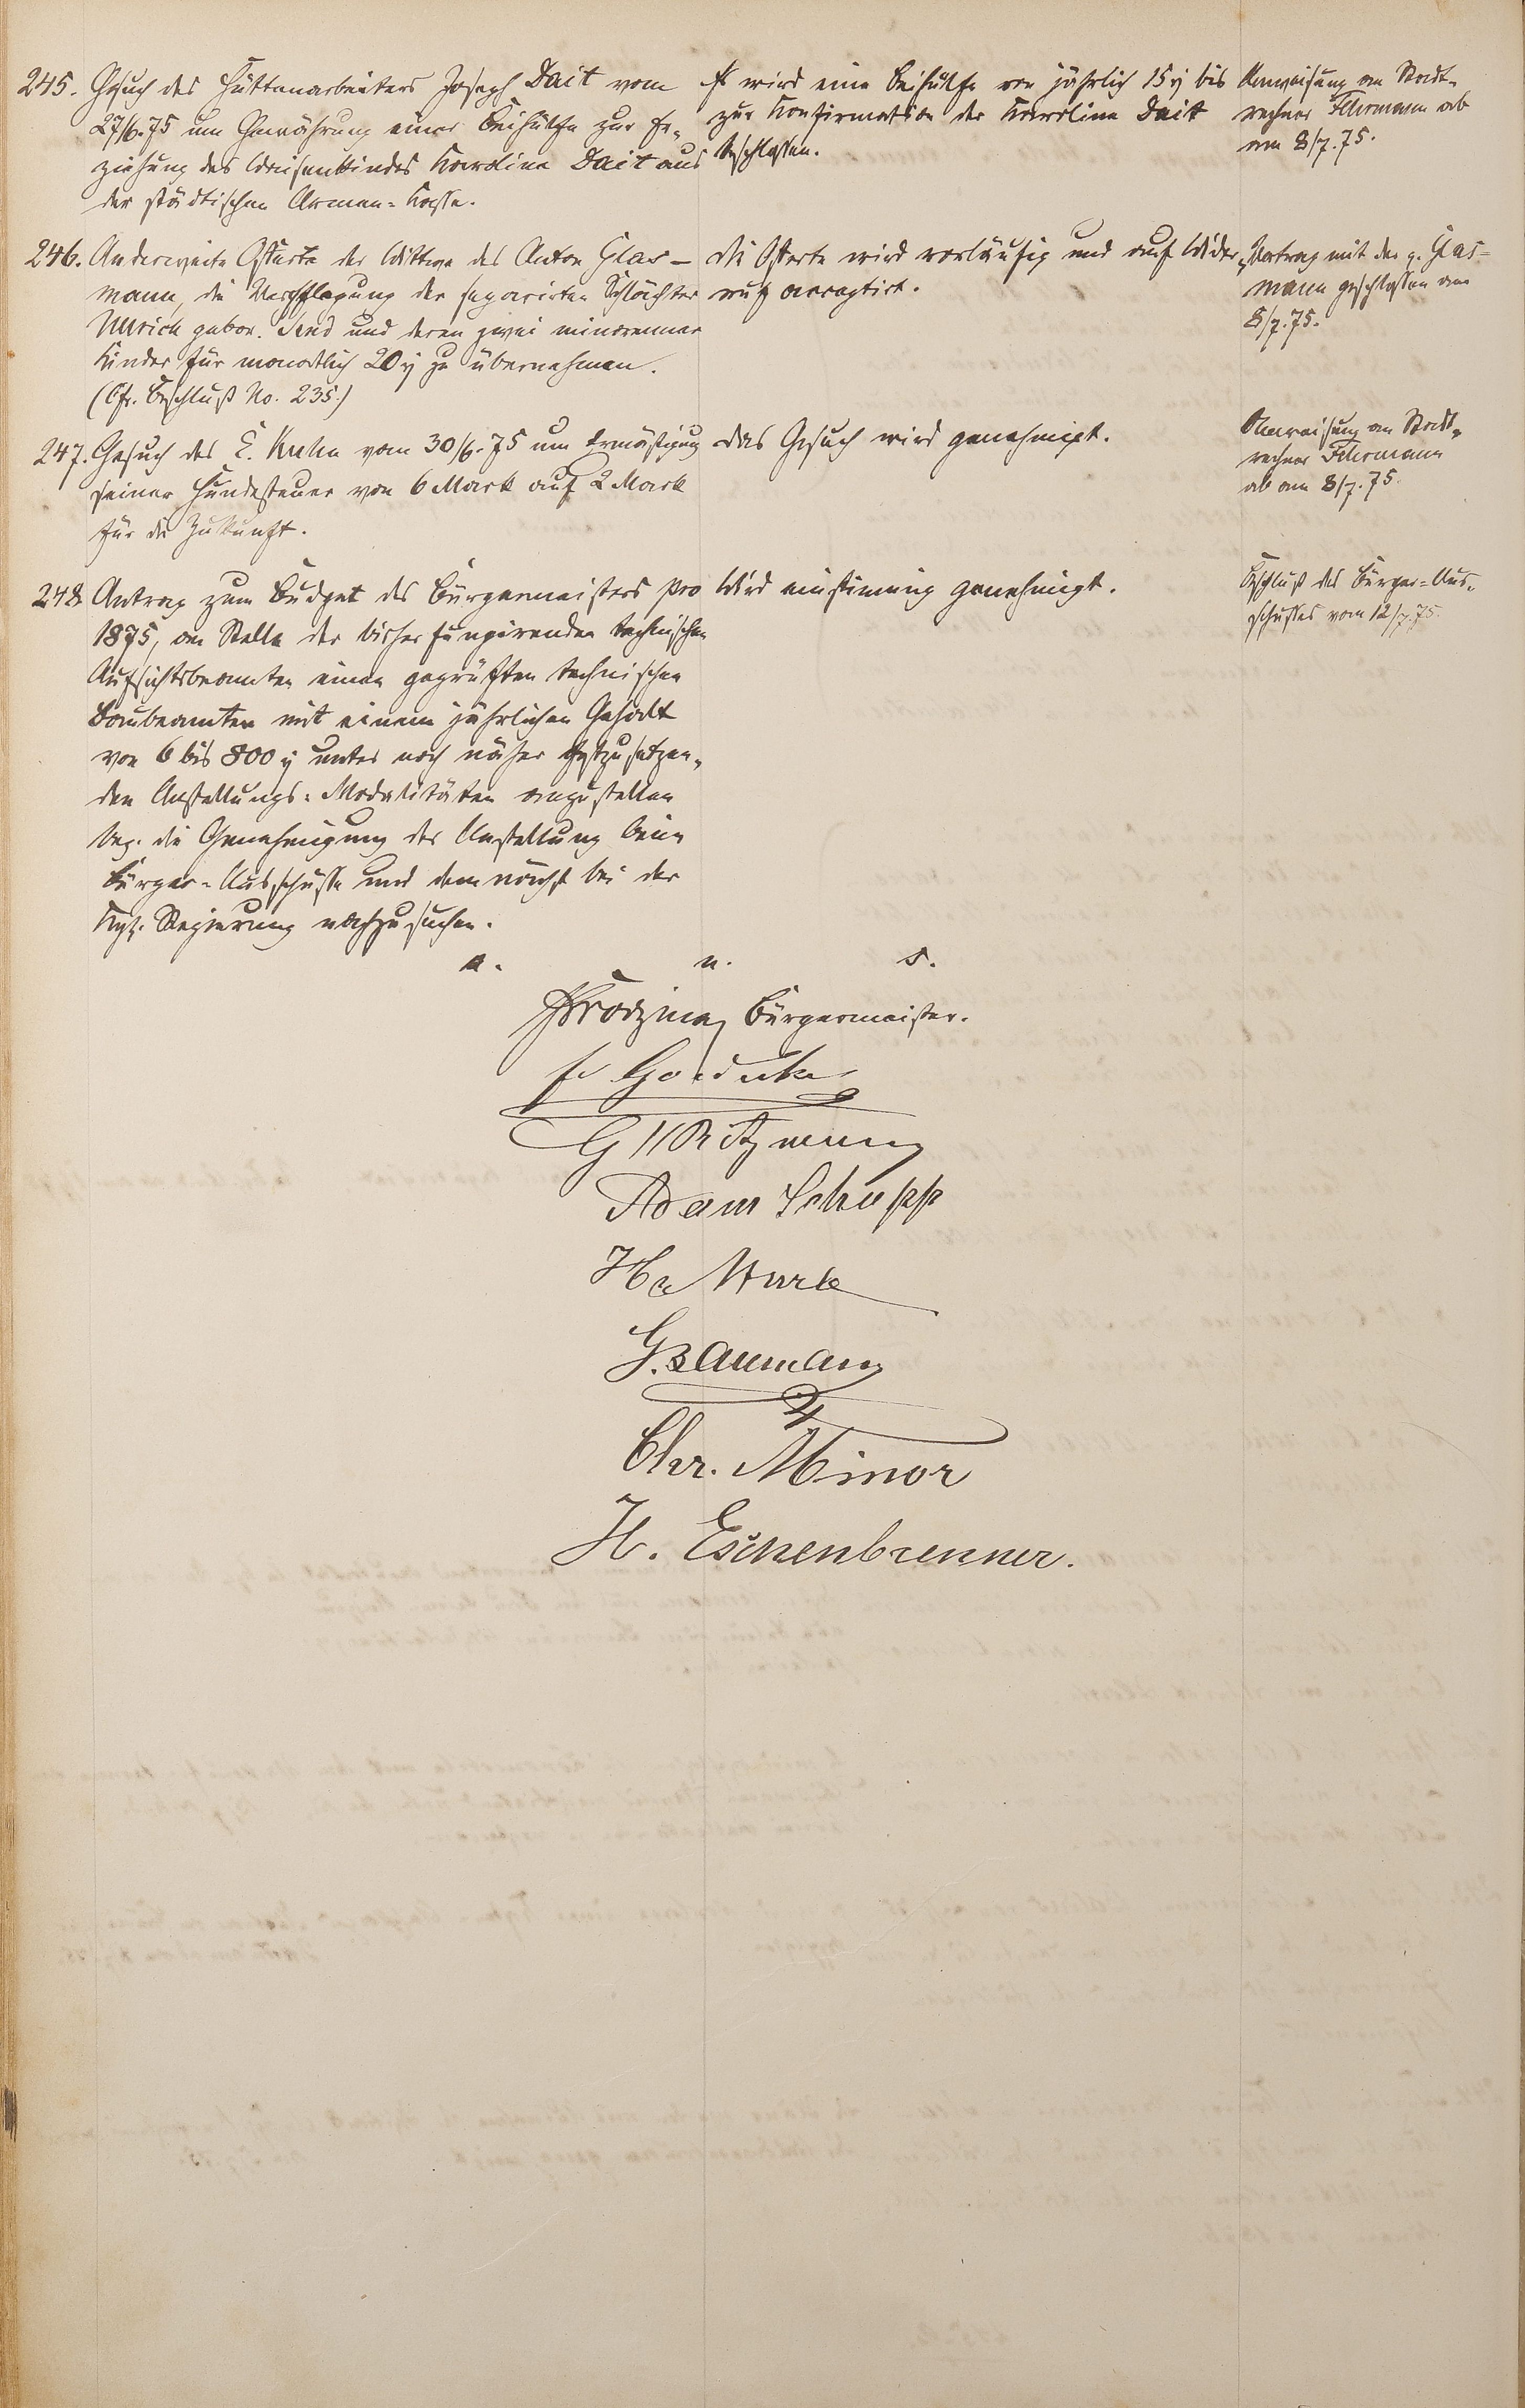 245. Gesuch des Hüttenarbeiters Joseph Dait vom
27/6.75 um Gewährung einer Beihülfe zur Er-
ziehung des Waisenkindes Karoline Dait aus
der städtischen Armen-Kasse.
Es wird eine Beihülfe von jährlich 15 bis
zur Konfirmation der Karoline Dait
beschlossen.
Anweisung an Stadt-
rechner Fuhrmann ab
am 8/7.75.
246. Anderweite Offerte der Wittwe des Anton Glas-
mann, die Verpflegung der separirten Schlächter
Ullrich gebor. und deren zwei minorennen
Kinder für monatlich 20 zu übernehmen.
(Cfr. Beschluß No. 235.)
Die Offerte wird vorläufig und auf Wider-
ruf acceptirt.
Vertrag mit der p. Glas-
mann geschlossen am
8/7.75.
247. Gesuch des C. Kuhn vom 30/6.75 um Ermäßigung
seiner Hundesteuer von 6 Mark auf 2 Mark
für die Zukunft.
Das Gesuch wird genehmigt.
Anweisung an Stadt-
rechner Fuhrmann
ab am 8/7.75.
248. Antrag zum Budget des Bürgermeisters pro
1875, an Stelle der bisher fungirenden technischen
Aufsichtsbeamten einen geprüften technischen
Baubeamten mit einem jährlichen Gehalt
von 6 bis 800 unter noch näher festzusetzen-
den Anstellungs-Modalitäten anzustellen
bez. die Genehmigung der Anstellung beim
Bürger-Ausschusse und demnächst bei der
Kgl. Regierung nachzusuchen.
Wird einstimmig genehmigt.
Beschluß des Bürger-Aus-
schusses vom 12/7.75.
a. u. s.
Bürgermeister.
Adam Schupp
G. Baumann
Chr. Minor
H. Eschenbrenner.